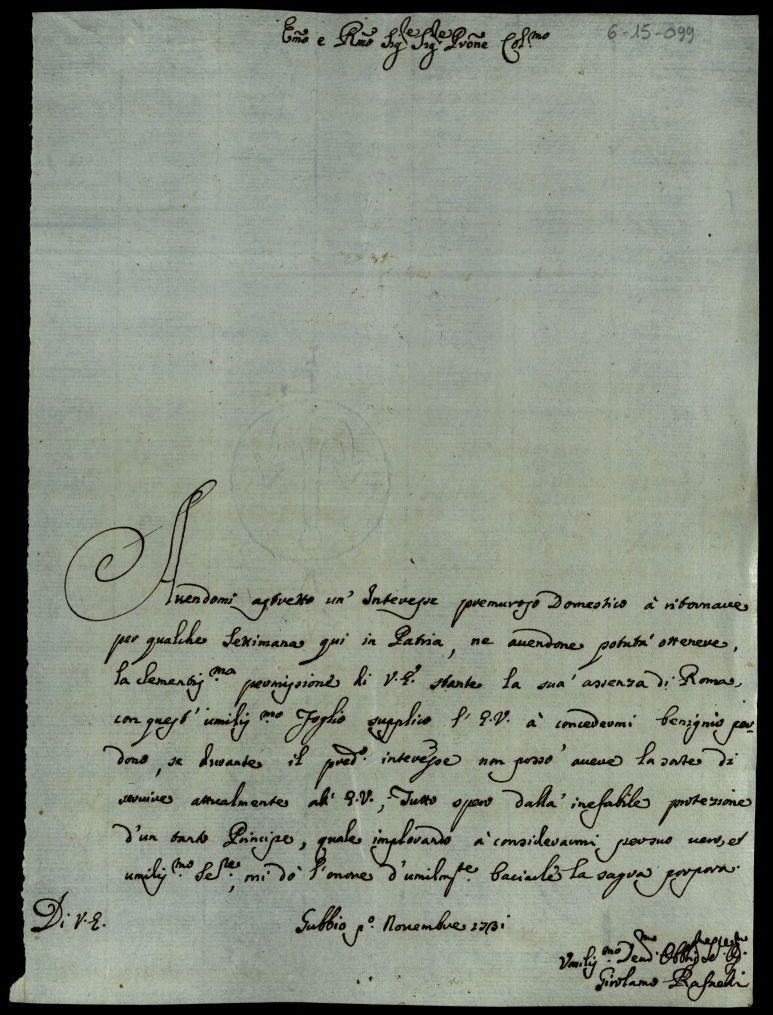 Emo e Rmo Sigre Sigre Prone Colmo
6-15-099
Avendomi astretto un' Interesse premuroso Domestico à ritornare
per qualche Settimana qui in Patria, ne avendone potuta' ottenere,
la clementissma permissione di V. E. stante la sua' assenza di Roma,
con quest' umilissmo Foglio supplico l' E.V. à concedermi benignio per
dono, se durante il predo. interesse non posso' avere la sorte di
servire attualmente all' E.V., Tutto spero dalla' inefabile protezione
d'un tanto Principe, quale implorando à considerarmi per suo vero, et
umilissmo Serre, mi dò l'onore d'umilmte baciarle la sagra porpora.
Di V. E.
Gubbio po. Novembre 1731
Umilissmo Devmo
Girolamo